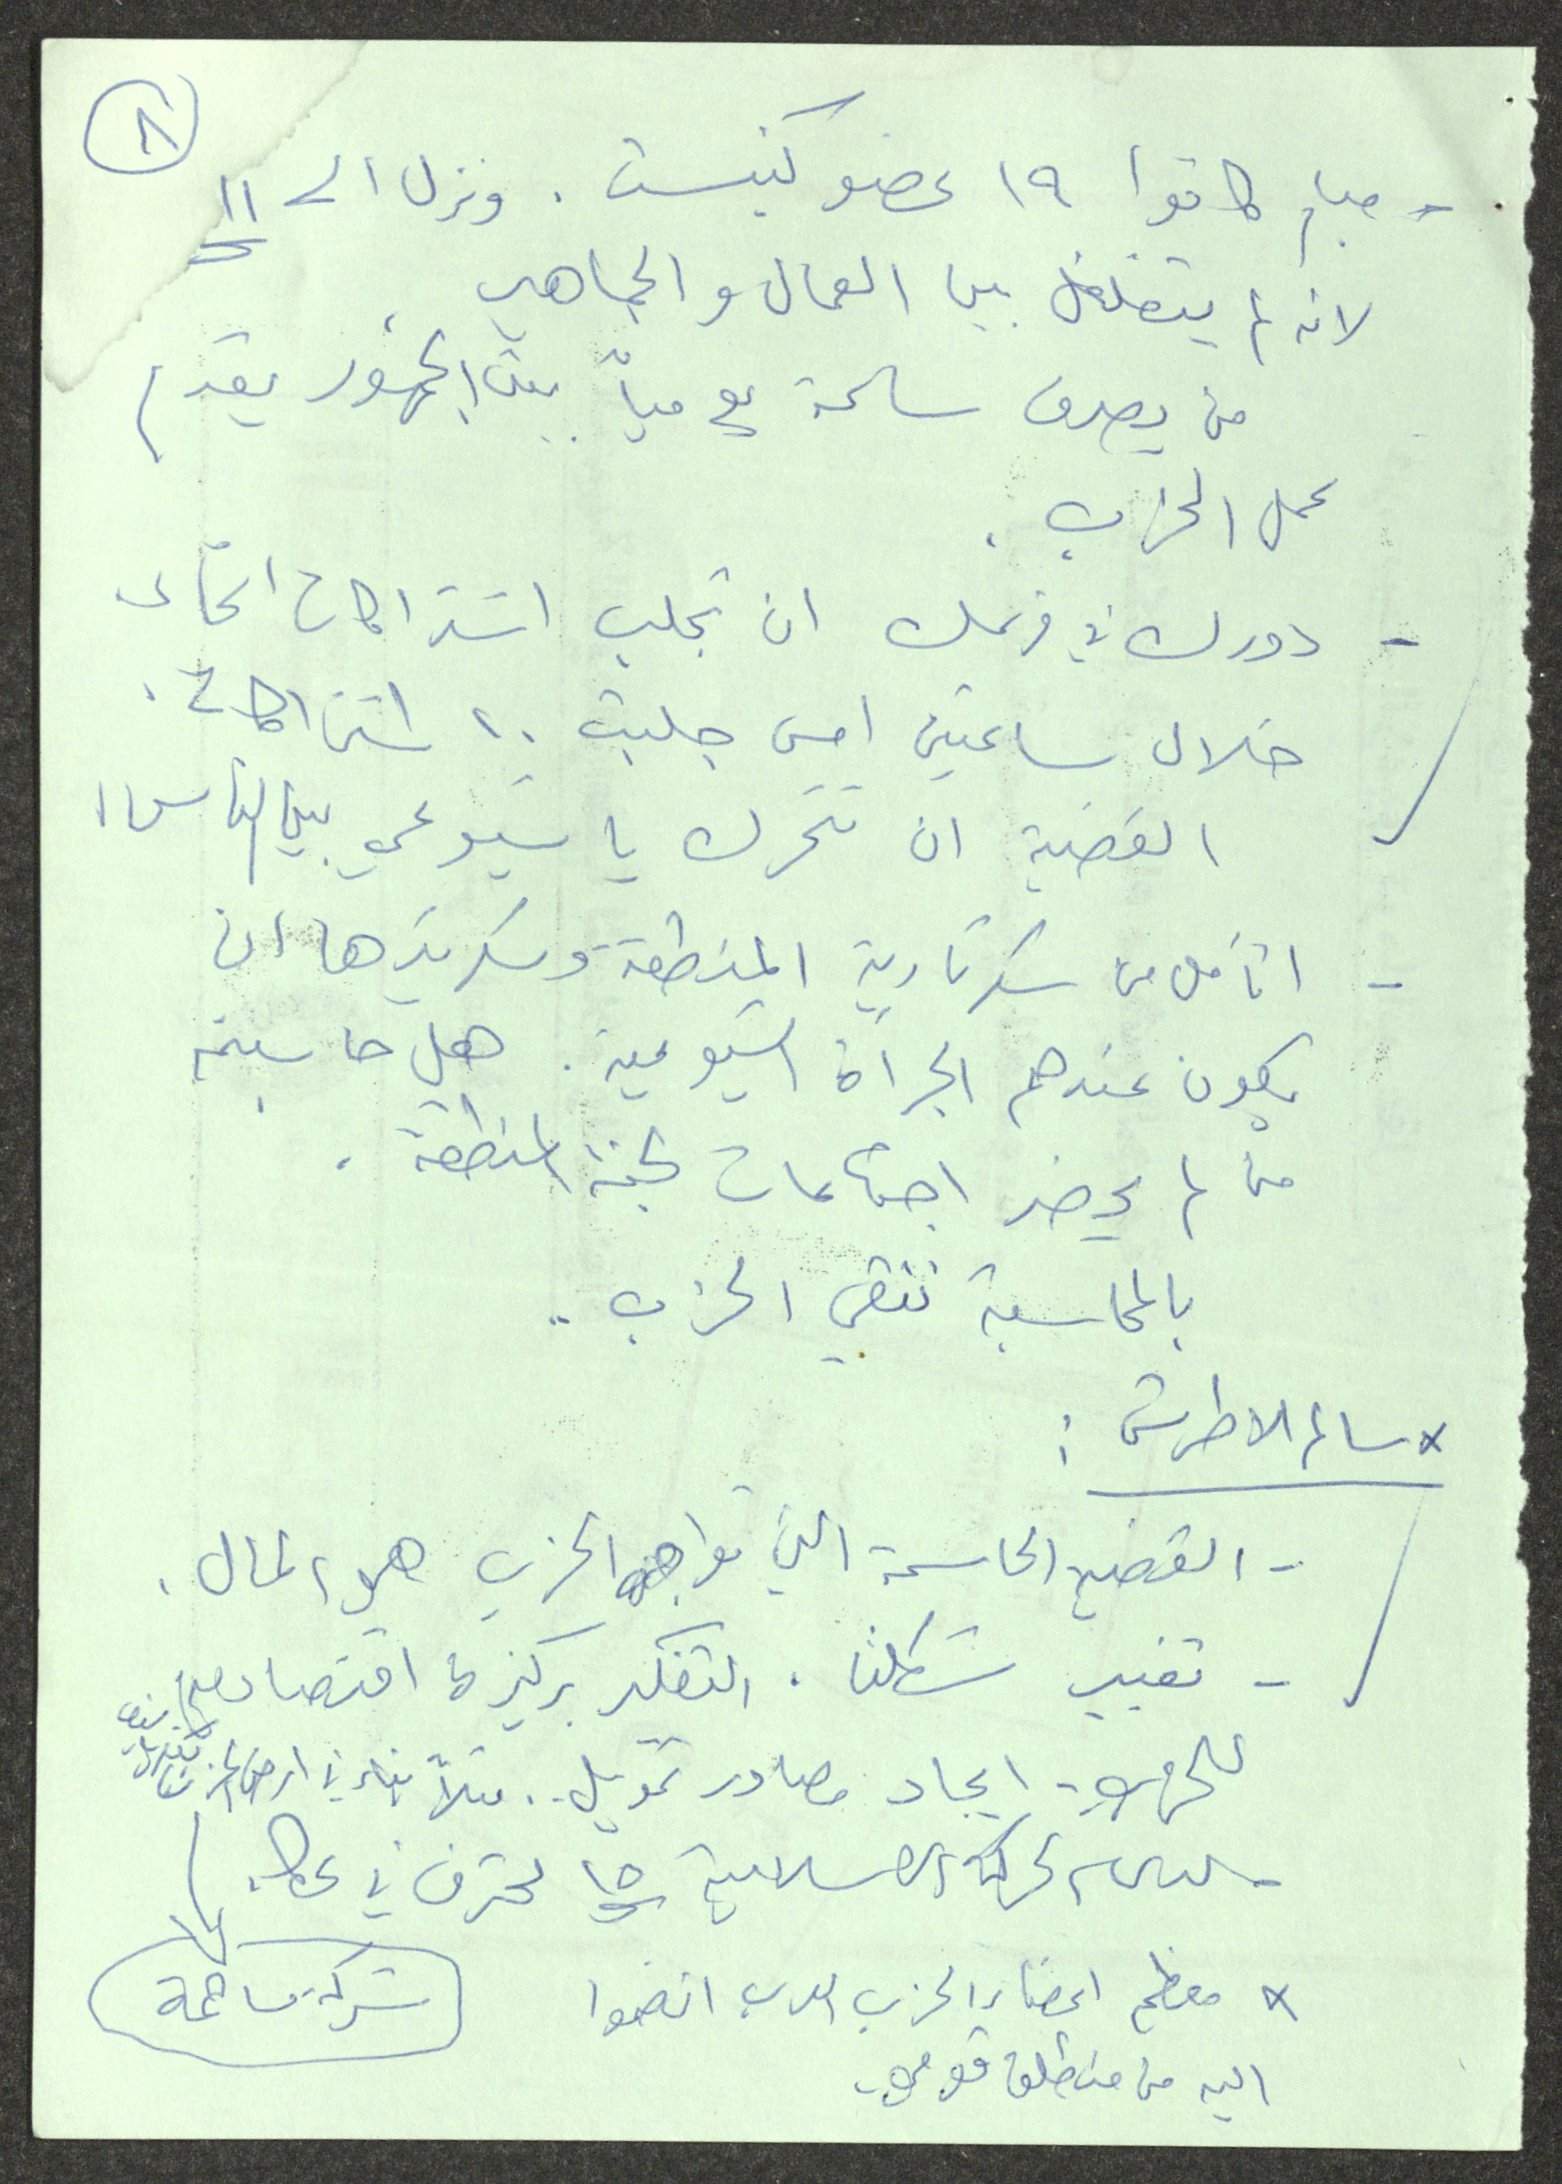 ٨
- مبام كانوا ١٩ عضو كنيست . ونزل الى ١١
لانه لم يتغلغل بين العمال والجماهير .
من يصرف ساعة يومياً بين الجمهور يقدم
عمل الحزب .
- دورك في فرعك ان تجلب اشتراكات الاتحاد
خلال ساعتين امس جلبت ٢٠ اشتراكات .
القضية ان تتحرك يا شيوعي بين الناس !
- اتأمل من سكرتارية المنطقة وسكرتيرها ان
يكون عندهم الجرأة الشيوعية . هل حاسبتم
من لم يحضر اجتماعات لجنة المنطقة .
بالمحاسبة ننقي الحزب ..
* سالم الاطرش :
- القضية الحاسمة التي تواجه الحزب هو المال .
- تغيير شكلنا . التفكير بركيزة اقتصادية
للحزب - ايجاد مصادر تمويل .. مثلاً بناء في ارض
- الحركة الاسلامية ١٥ محترف في عكا .
شركة مساهمة
* معظم اعضاء الحزب العرب انضموا
اليه من منطلق قومي .